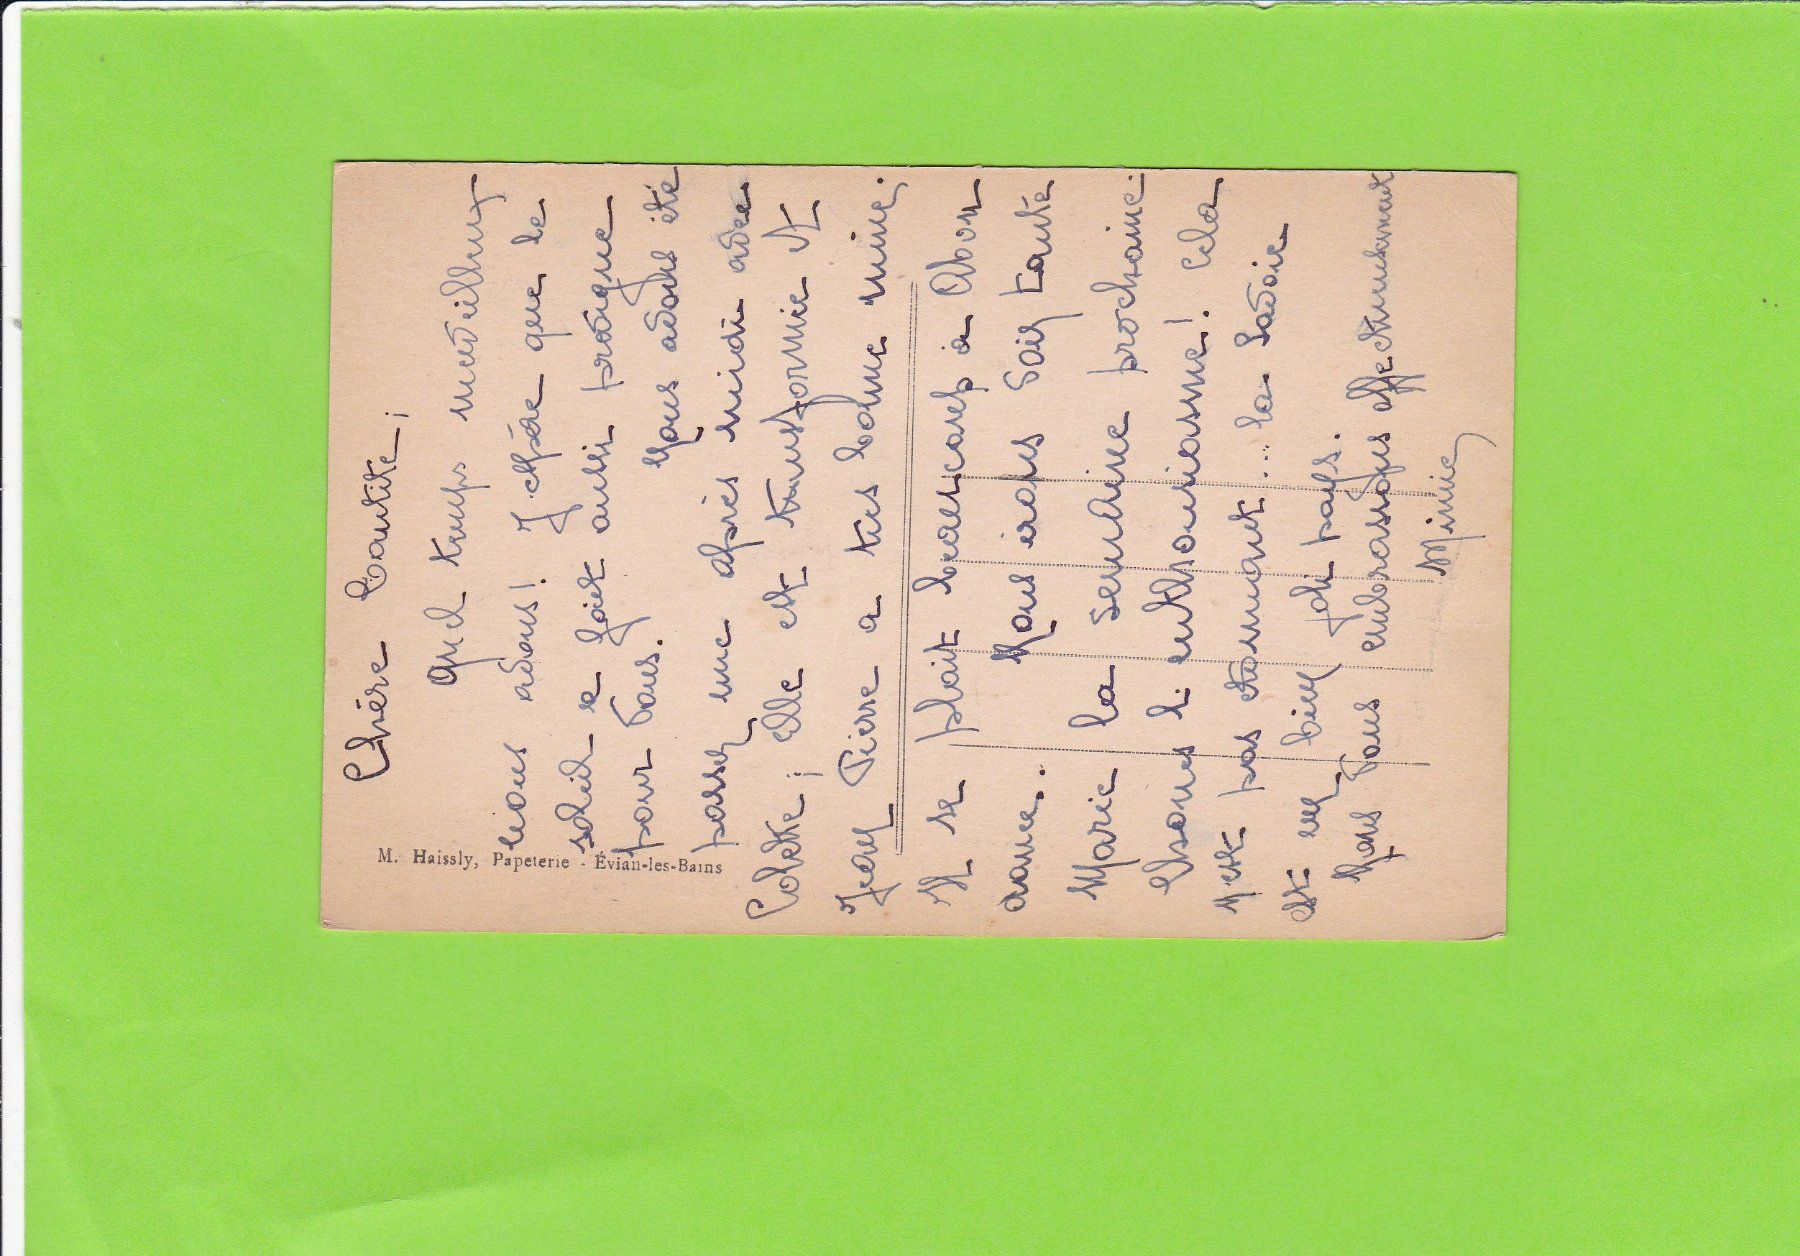 Chère Tantite,
Quel temps merveilleux
nous avons! J'espère que le
soleil se fait aussi prodigue
pour vous. Nous avons été
passer une après midi avec
Colette; elle est transformée et
Jean Pierre a très bonne mine.
Il se plait beaucoup à
Nous irons voir tante
Marie la semaine prochaine.
l'enthousiasme! Cela
n'est pas étonnant... la Savoie
est un bien joli pays.
Nous vous embrassons affectueusement
Mimie
M. Haissly, Papeterie - Évian-les-Bains